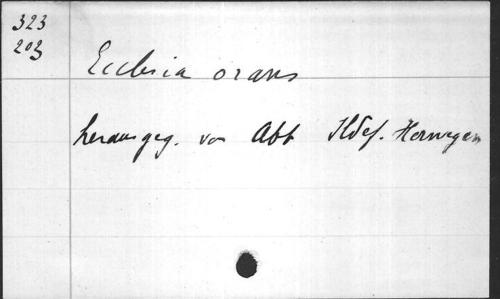 323
203
Ecclesia orans
herausgeg. von Abt Ildef. Herwegen